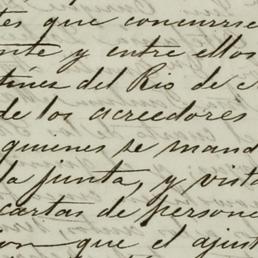 tes que concurrie
nte y entre ellos
tínez del Rio de
de los acreedores
quienes se mand
la junta, y vista
cartas de persone
ion que el ajust